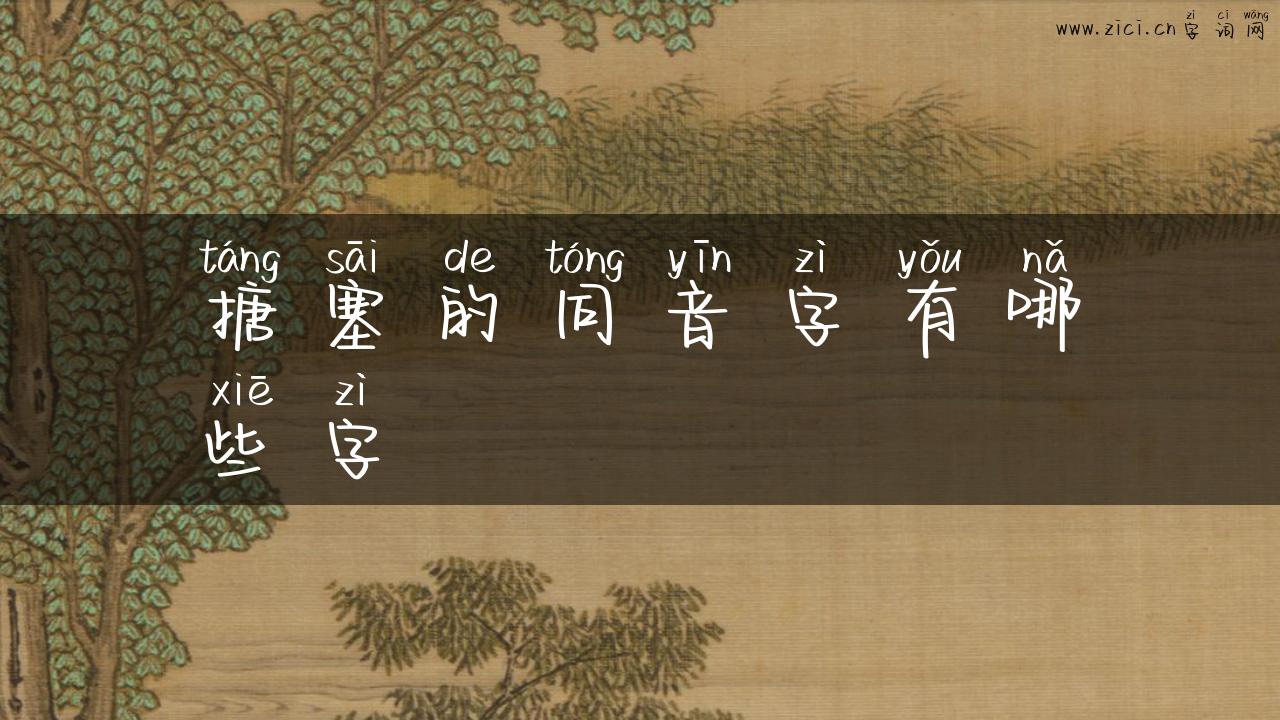 zì cí wǎng
www.zici.cn字词网
táng sāi de tóng yīn zì yǒu nǎ
搪塞的同音字有哪
xiē zì
些字